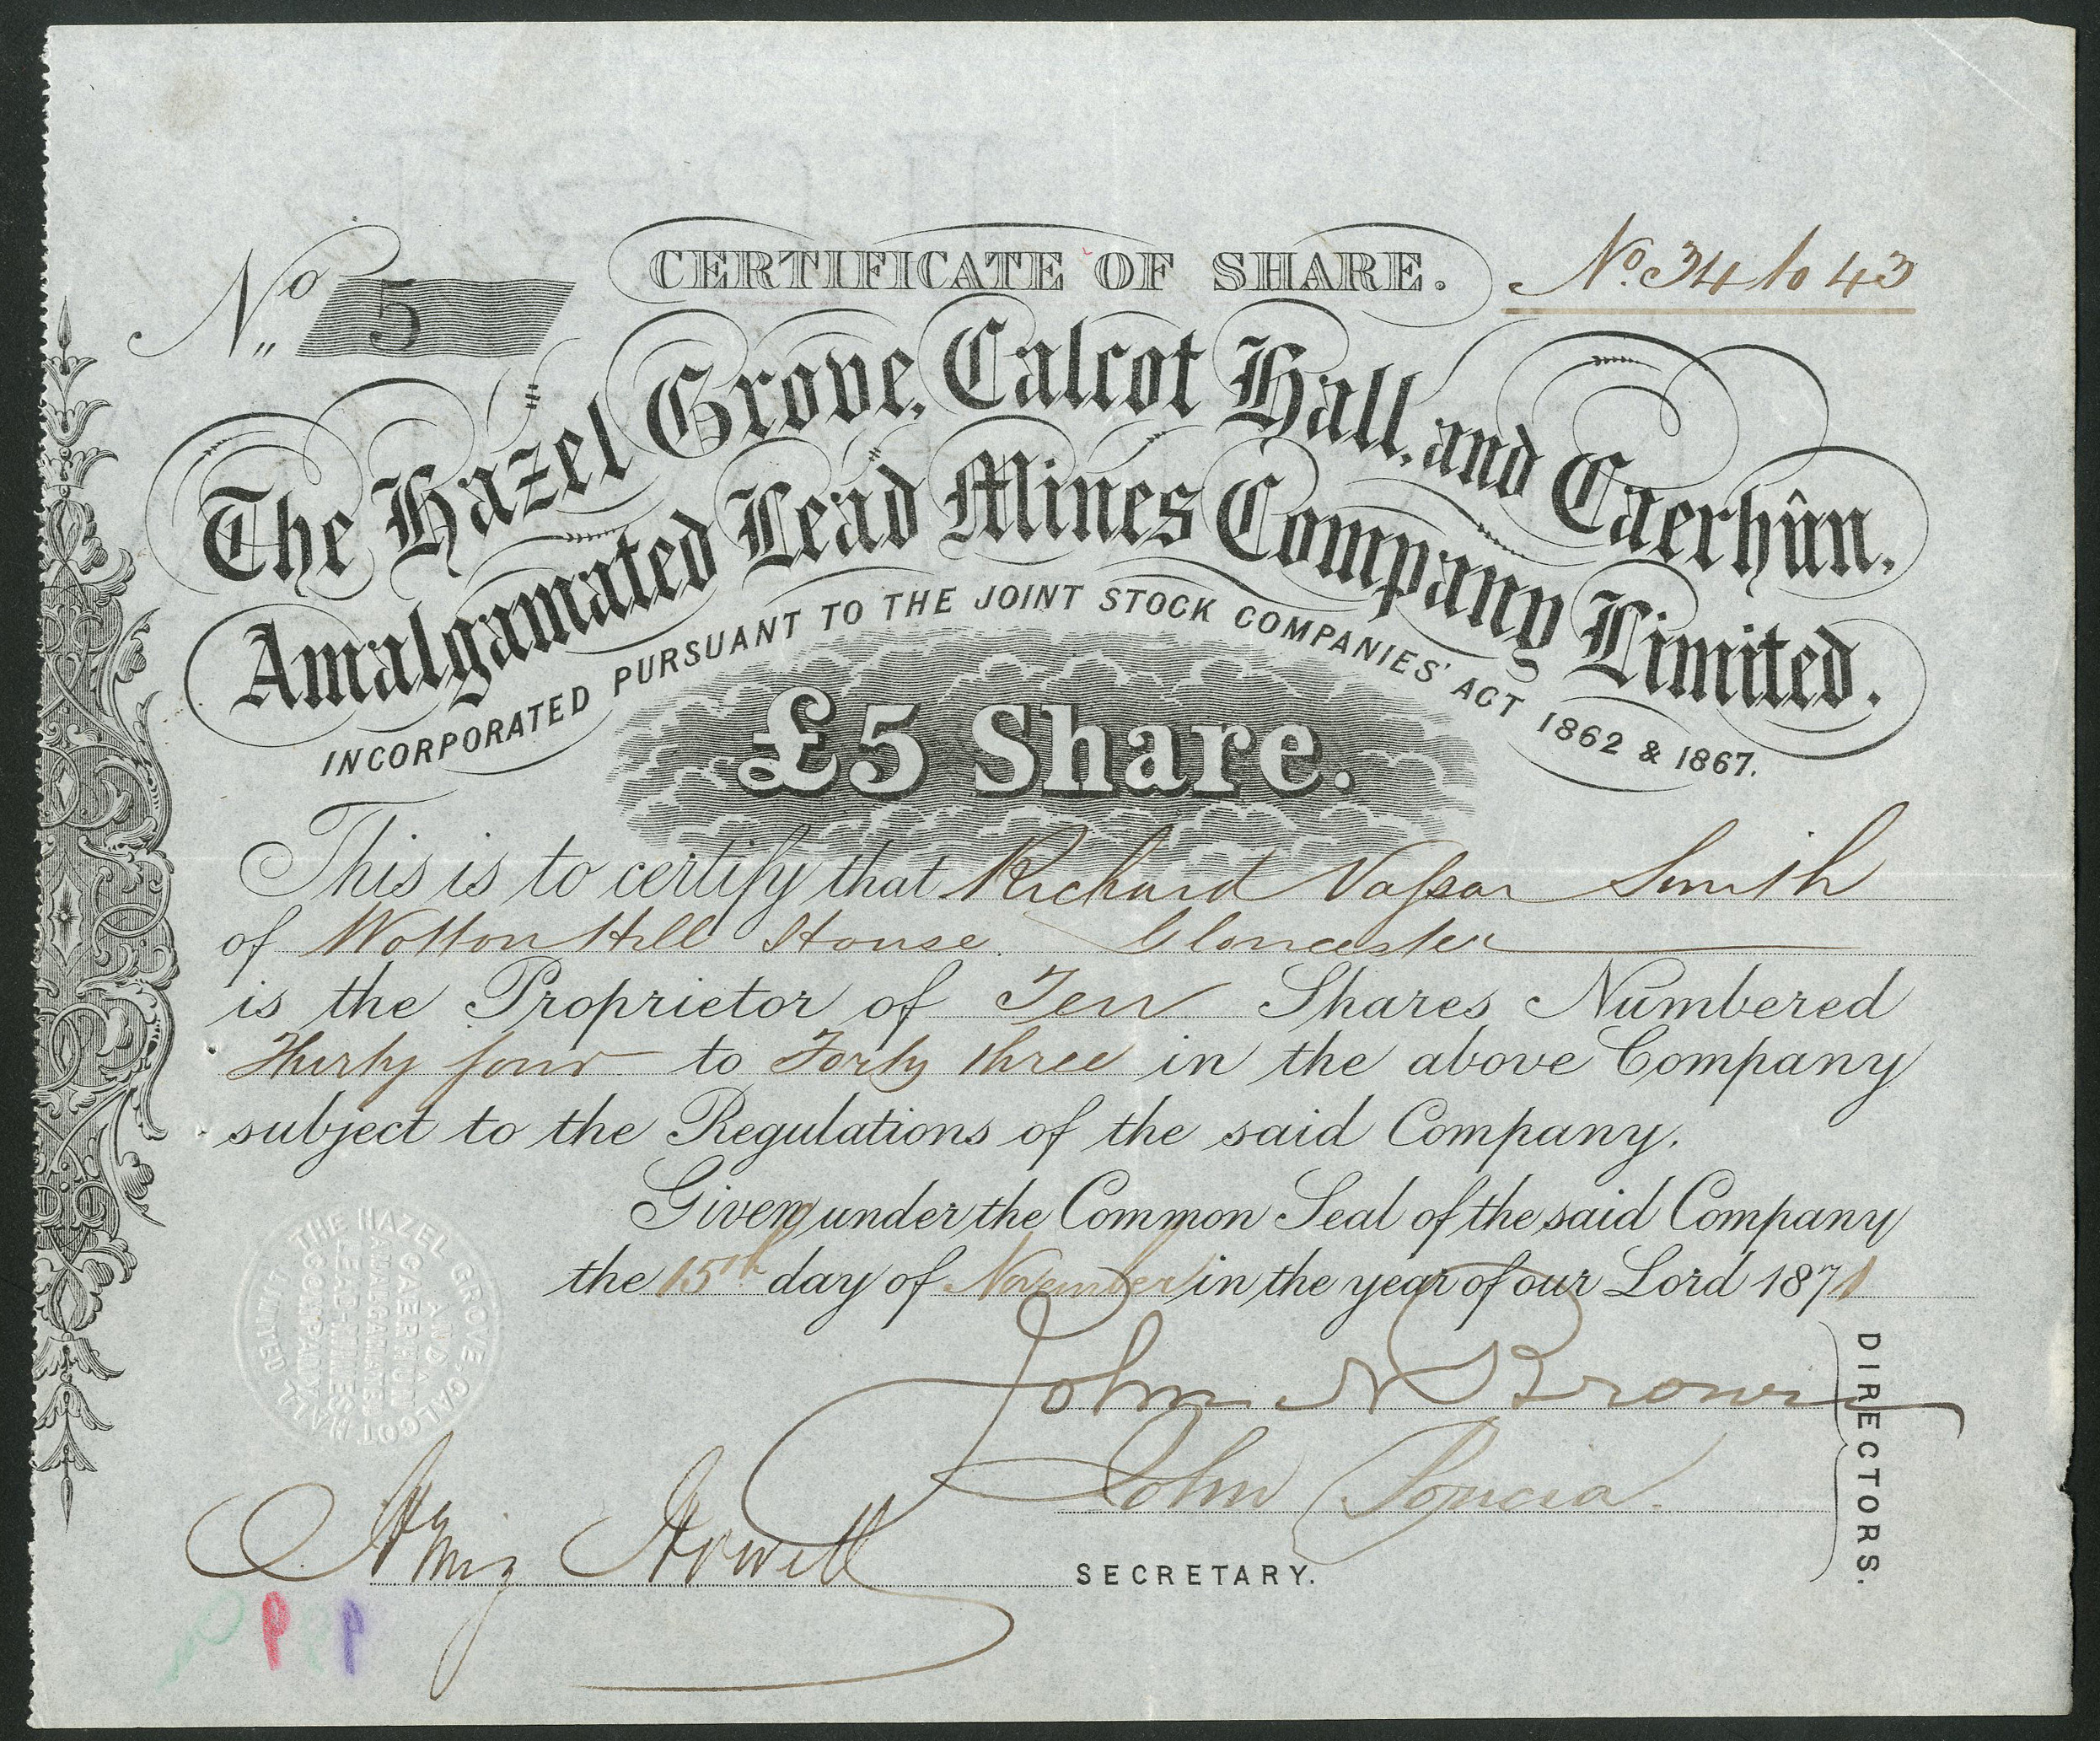 No. 5
CERTIFICATE OF SHARE.
No. 34 to 43
The Hazel Grove, Calcot Hall, and Caerhûn,
Amalgamated Lead Mines Company Limited.
INCORPORATED PURSUANT TO THE JOINT STOCK COMPANIES' ACT 1862 & 1867.
£5 Share.
This is to certify that Richard Vassar Smith
of Wotton Hill House Gloucester
is the Proprietor of Ten Shares Numbered
Thirty four to Forty three in the above Company
subject to the Regulations of the said Company.
Given under the Common Seal of the said Company
the 15th day of November in the year of our Lord 1871
THE HAZEL GROVE, CALCOT HALL
AND
CAERHÛN
AMALGAMATED
LEAD-MINES
COMPANY
LIMITED
John N Brown
John
DIRECTORS.
Howell
SECRETARY.